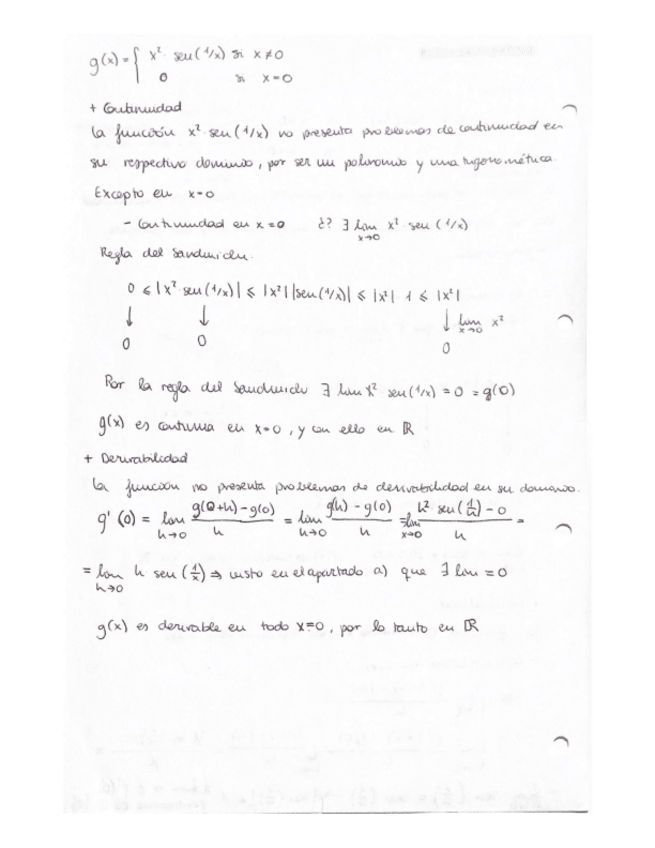 g(x) = { x² · sen(1/x) si x ≠ 0
0 si x = 0
+ Continuidad
La función x² · sen(1/x) no presenta problemas de continuidad en
su respectivo dominio, por ser un polinomio y una trigonométrica.
Excepto en x = 0
- Continuidad en x = 0 ¿? ∃ lim x→0 x² · sen(1/x)
Regla del Sandwich.
0 ≤ |x² · sen(1/x)| ≤ |x²| |sen(1/x)| ≤ |x²| · 1 ≤ |x²|
↓ ↓ ↓ lim x→0 x²
0 0 0
Por la regla del Sandwich ∃ lim x² sen(1/x) = 0 = g(0)
g(x) es continua en x = 0, y con ello en ℝ
+ Derivabilidad
La función no presenta problemas de derivabilidad en su dominio.
g'(0) = lim h→0 (g(0+h) - g(0))/h = lim h→0 (g(h) - g(0))/h = lim x→0 (h² · sen(1/h) - 0)/h =
= lim h→0 h sen(1/x) ⇒ visto en el apartado a) que ∃ lim = 0
g(x) es derivable en todo x = 0, por lo tanto en ℝ